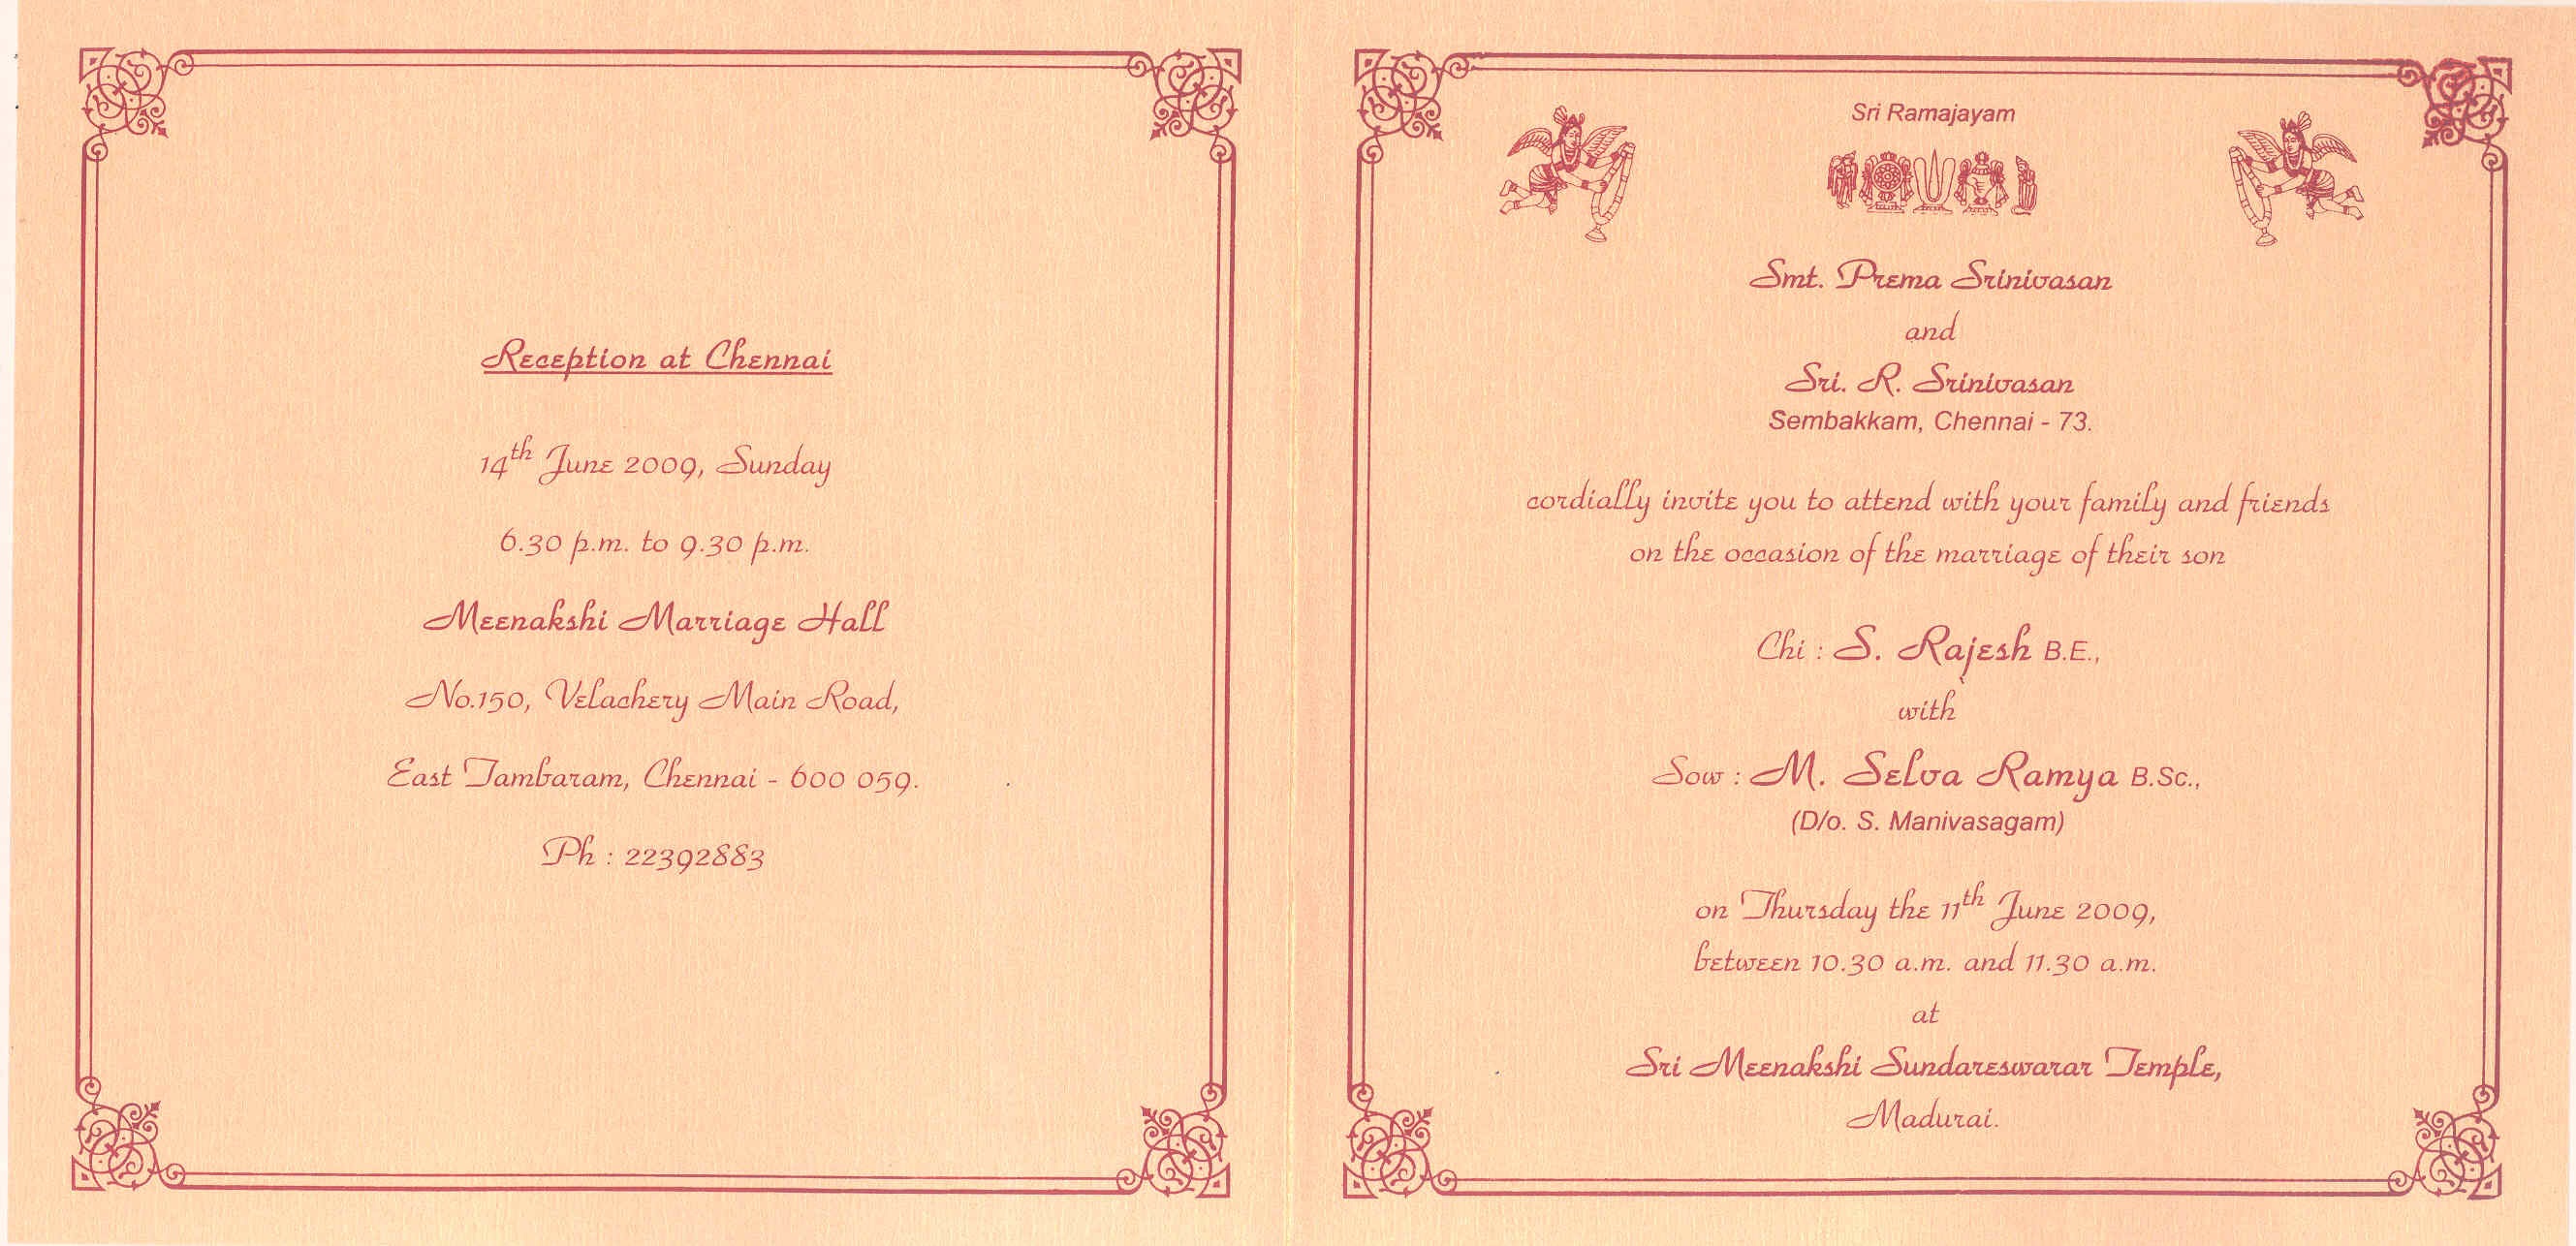 Reception at Chennai
14th June 2009, Sunday
6.30 p.m. to 9.30 p.m.
Meenakshi Marriage Hall
No.150, Velachery Main Road,
East Tambaram, Chennai - 600 059.
Ph : 22392883
Sri Ramajayam
Smt. Prema Srinivasan
and
Sri. R. Srinivasan
Sembakkam, Chennai - 73.
cordially invite you to attend with your family and friends
on the occasion of the marriage of their son
Chi : S. Rajesh B.E.,
with
Sow : M. Selva Ramya B.Sc.,
(D/o. S. Manivasagam)
on Thursday the 11th June 2009,
between 10.30 a.m. and 11.30 a.m.
at
Sri Meenakshi Sundareswarar Temple,
Madurai.